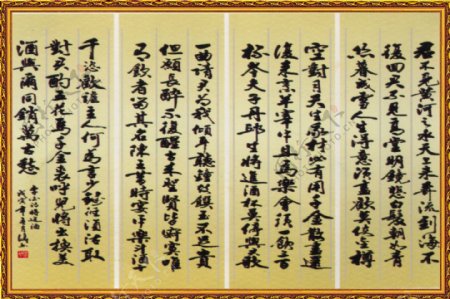 君不見黄河之水天上来奔流到海不
復回又不見高堂明鏡悲白髮朝如青
丝暮成雪人生得意須盡歡莫使金樽
空對月天生我材必有用千金散盡還
復来烹羊宰牛且為樂會須一飲三百
杯岑夫子丹邱生將進酒杯莫停與君歌
一曲請君為我傾耳聽鐘鼓饌玉不足貴
但願長醉不復醒古来聖賢皆寂寞唯
有飲者留其名陳王昔時宴平樂斗酒十
千恣歡謔主人何為言少錢徑須沽取
對君酌五花馬千金裘呼兒將出換美
酒與爾同銷萬古愁
李白詩將進酒
戊寅年